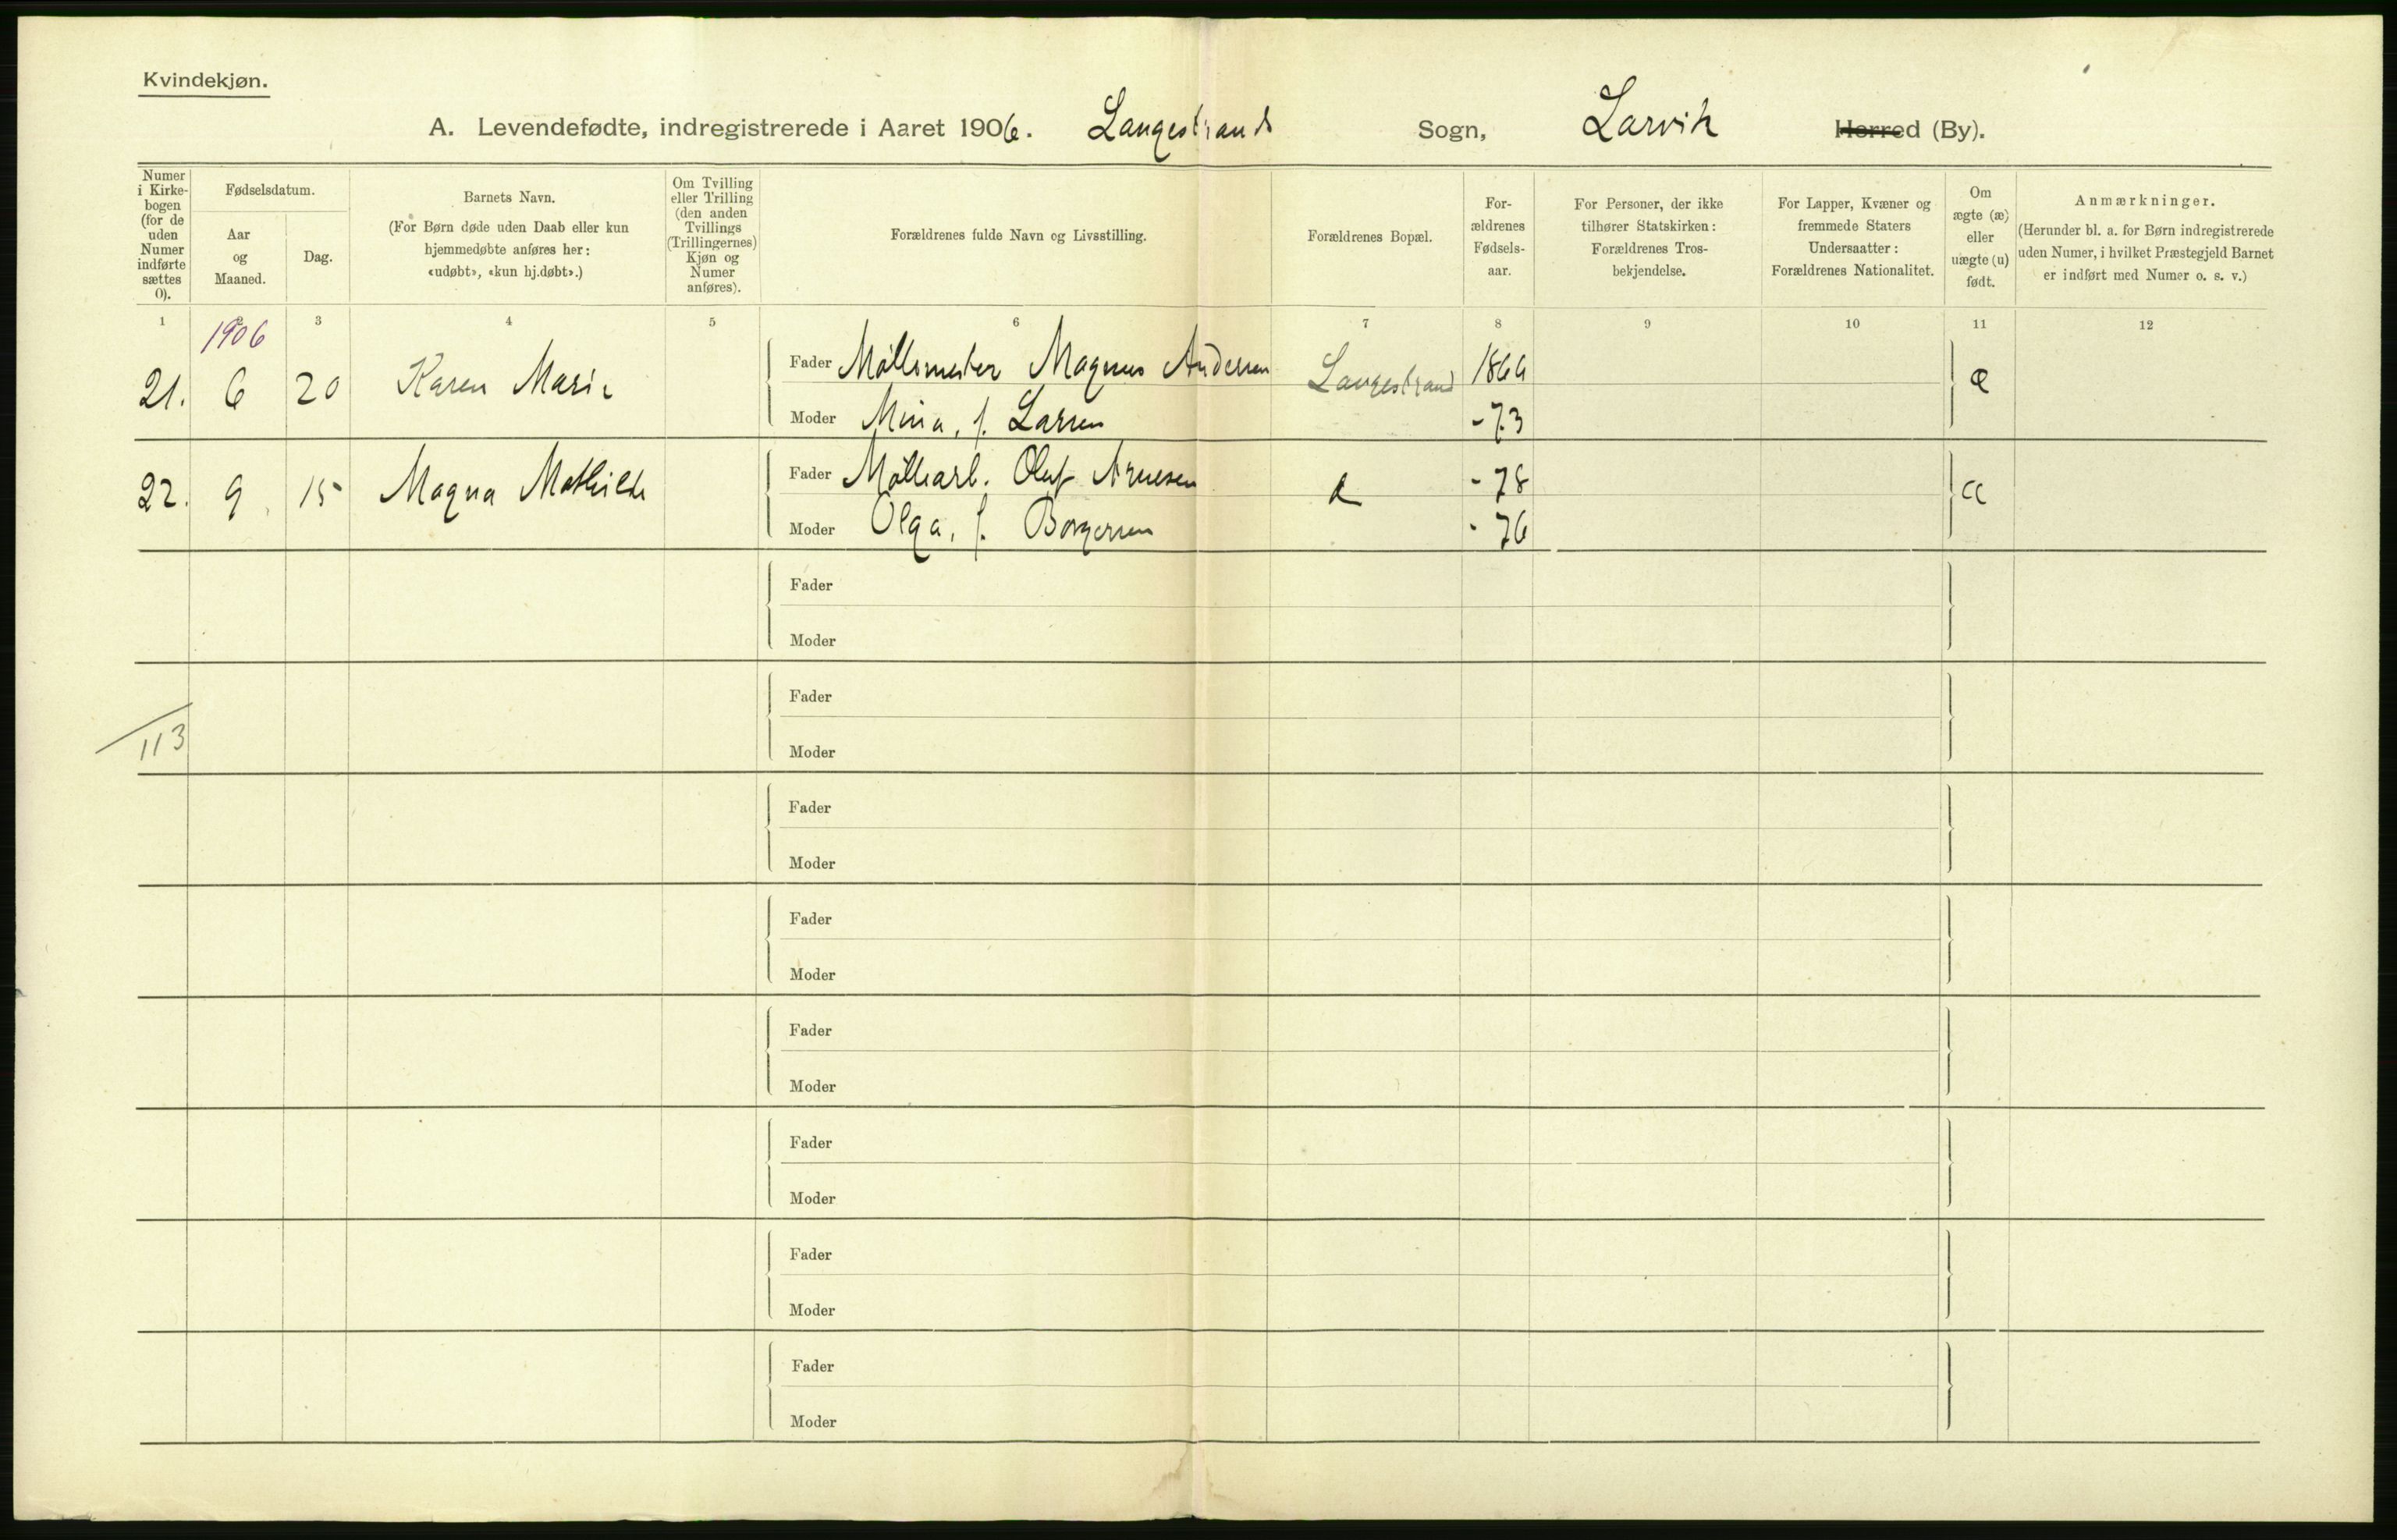 Kvindekjøn.
A. Levendefødte, indregistrerede i Aaret 1906. Langestrands Sogn, Larvik Herred (By).
Numer i Kirkebogen (for de uden Numer indførte sættes 0).
Fødselsdatum.
Aar og Maaned.
Dag.
Barnets Navn.
(For Børn døde uden Daab eller kun hjemmedøbte anføres her: «udøbt», «kun hj.døbt».)
Om Tvilling eller Trilling (den anden Tvillings (Trillingernes) Kjøn og Numer anføres).
Forældrenes fulde Navn og Livsstilling.
Forældrenes Bopæl.
Forældrenes Fødselsaar.
For Personer, der ikke tilhører Statskirken: Forældrenes Trosbekjendelse.
For Lapper, Kvæner og fremmede Staters Undersaatter: Forældrenes Nationalitet.
Om ægte (æ) eller uægte (u) født.
Anmærkninger.
(Herunder bl. a. for Børn indregistrerede uden Numer, i hvilket Præstegjeld Barnet er indført med Numer o. s. v.)
1 2 3 4 5 6 7 8 9 10 11 12
1906
21. 6 20 Karen Marie Fader Møllemester Magnus Andersen Langestrand 1866 æ
Moder Mina, f. Larsen - 73
22. 9 15 Magna Mathilde Fader Møllearb. Oluf Arnesen - 78 æ
Moder Olga, f. Borgersen - 76
Fader
Moder
Fader
113 Moder
Fader
Moder
Fader
Moder
Fader
Moder
Fader
Moder
Fader
Moder
Fader
Moder